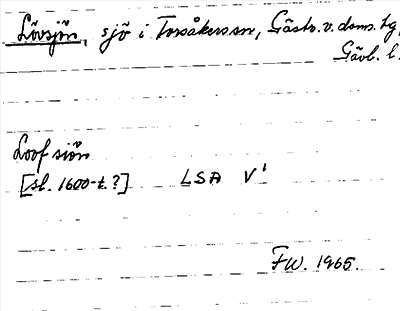 Lövsjön, sjö i Torsåkers sn, Gästr. v. doms. tg,
Gävl. l.
Loof siön
[sl. 1600-t.?] LSA V¹
FW. 1965.